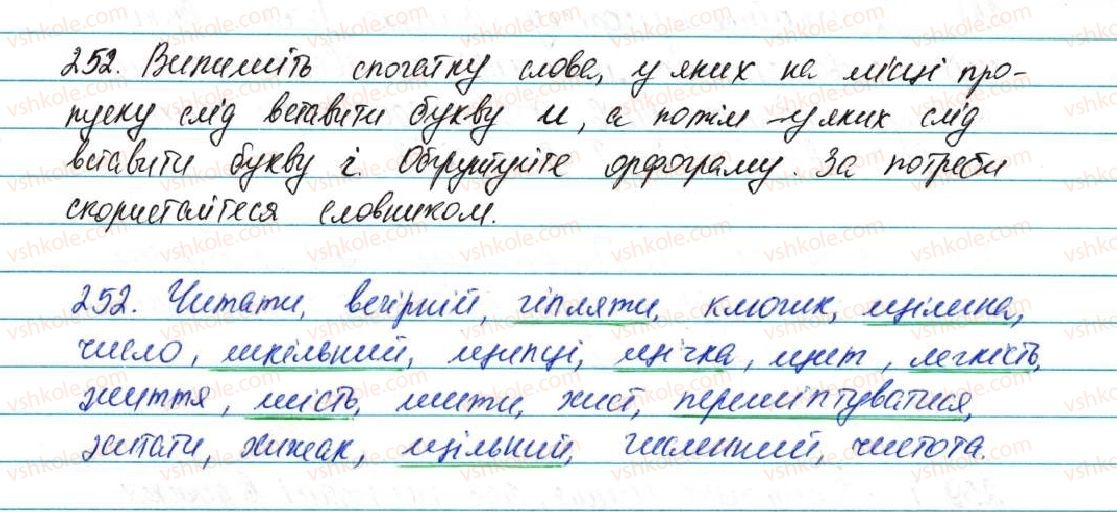 252. Випишіть спочатку слова, у яких на місці про-
пуску слід вставити букву и, а потім – у яких слід
вставити букву і. Обґрунтуйте орфограму. За потреби
скористайтеся словником.
252. Читати, вечірній, чіпляти, ключик, щілина,
число, шкільний, щипці, щічка, щит, легкість,
життя, шість, шити, хист, перешіптуватися,
житати, хижак, щільний, численний, чистота.